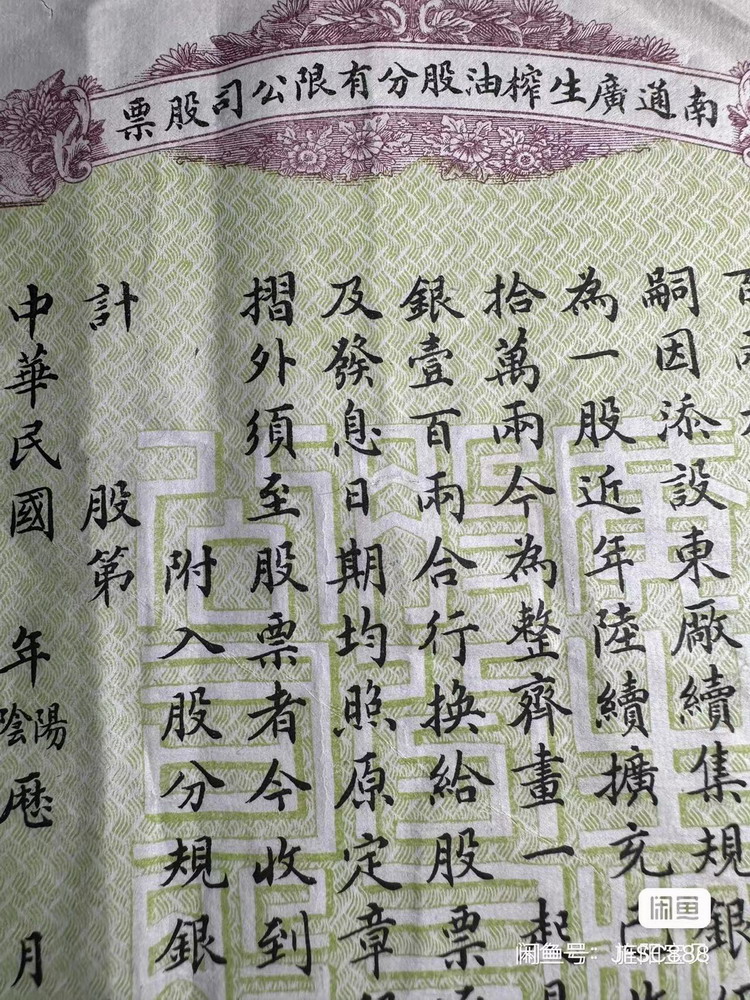 南通廣生榨油股分有限公司股票
嗣因添設東廠續集規銀
為一股近年陸續擴充
拾萬兩今為整齊畫一起
銀壹百兩合行換給股票
及發息日期均照原定章
摺外須至股票者今收到
附入股分規銀
計 股第
中華民國 年陰陽歷 月
闲鱼
闲鱼号：